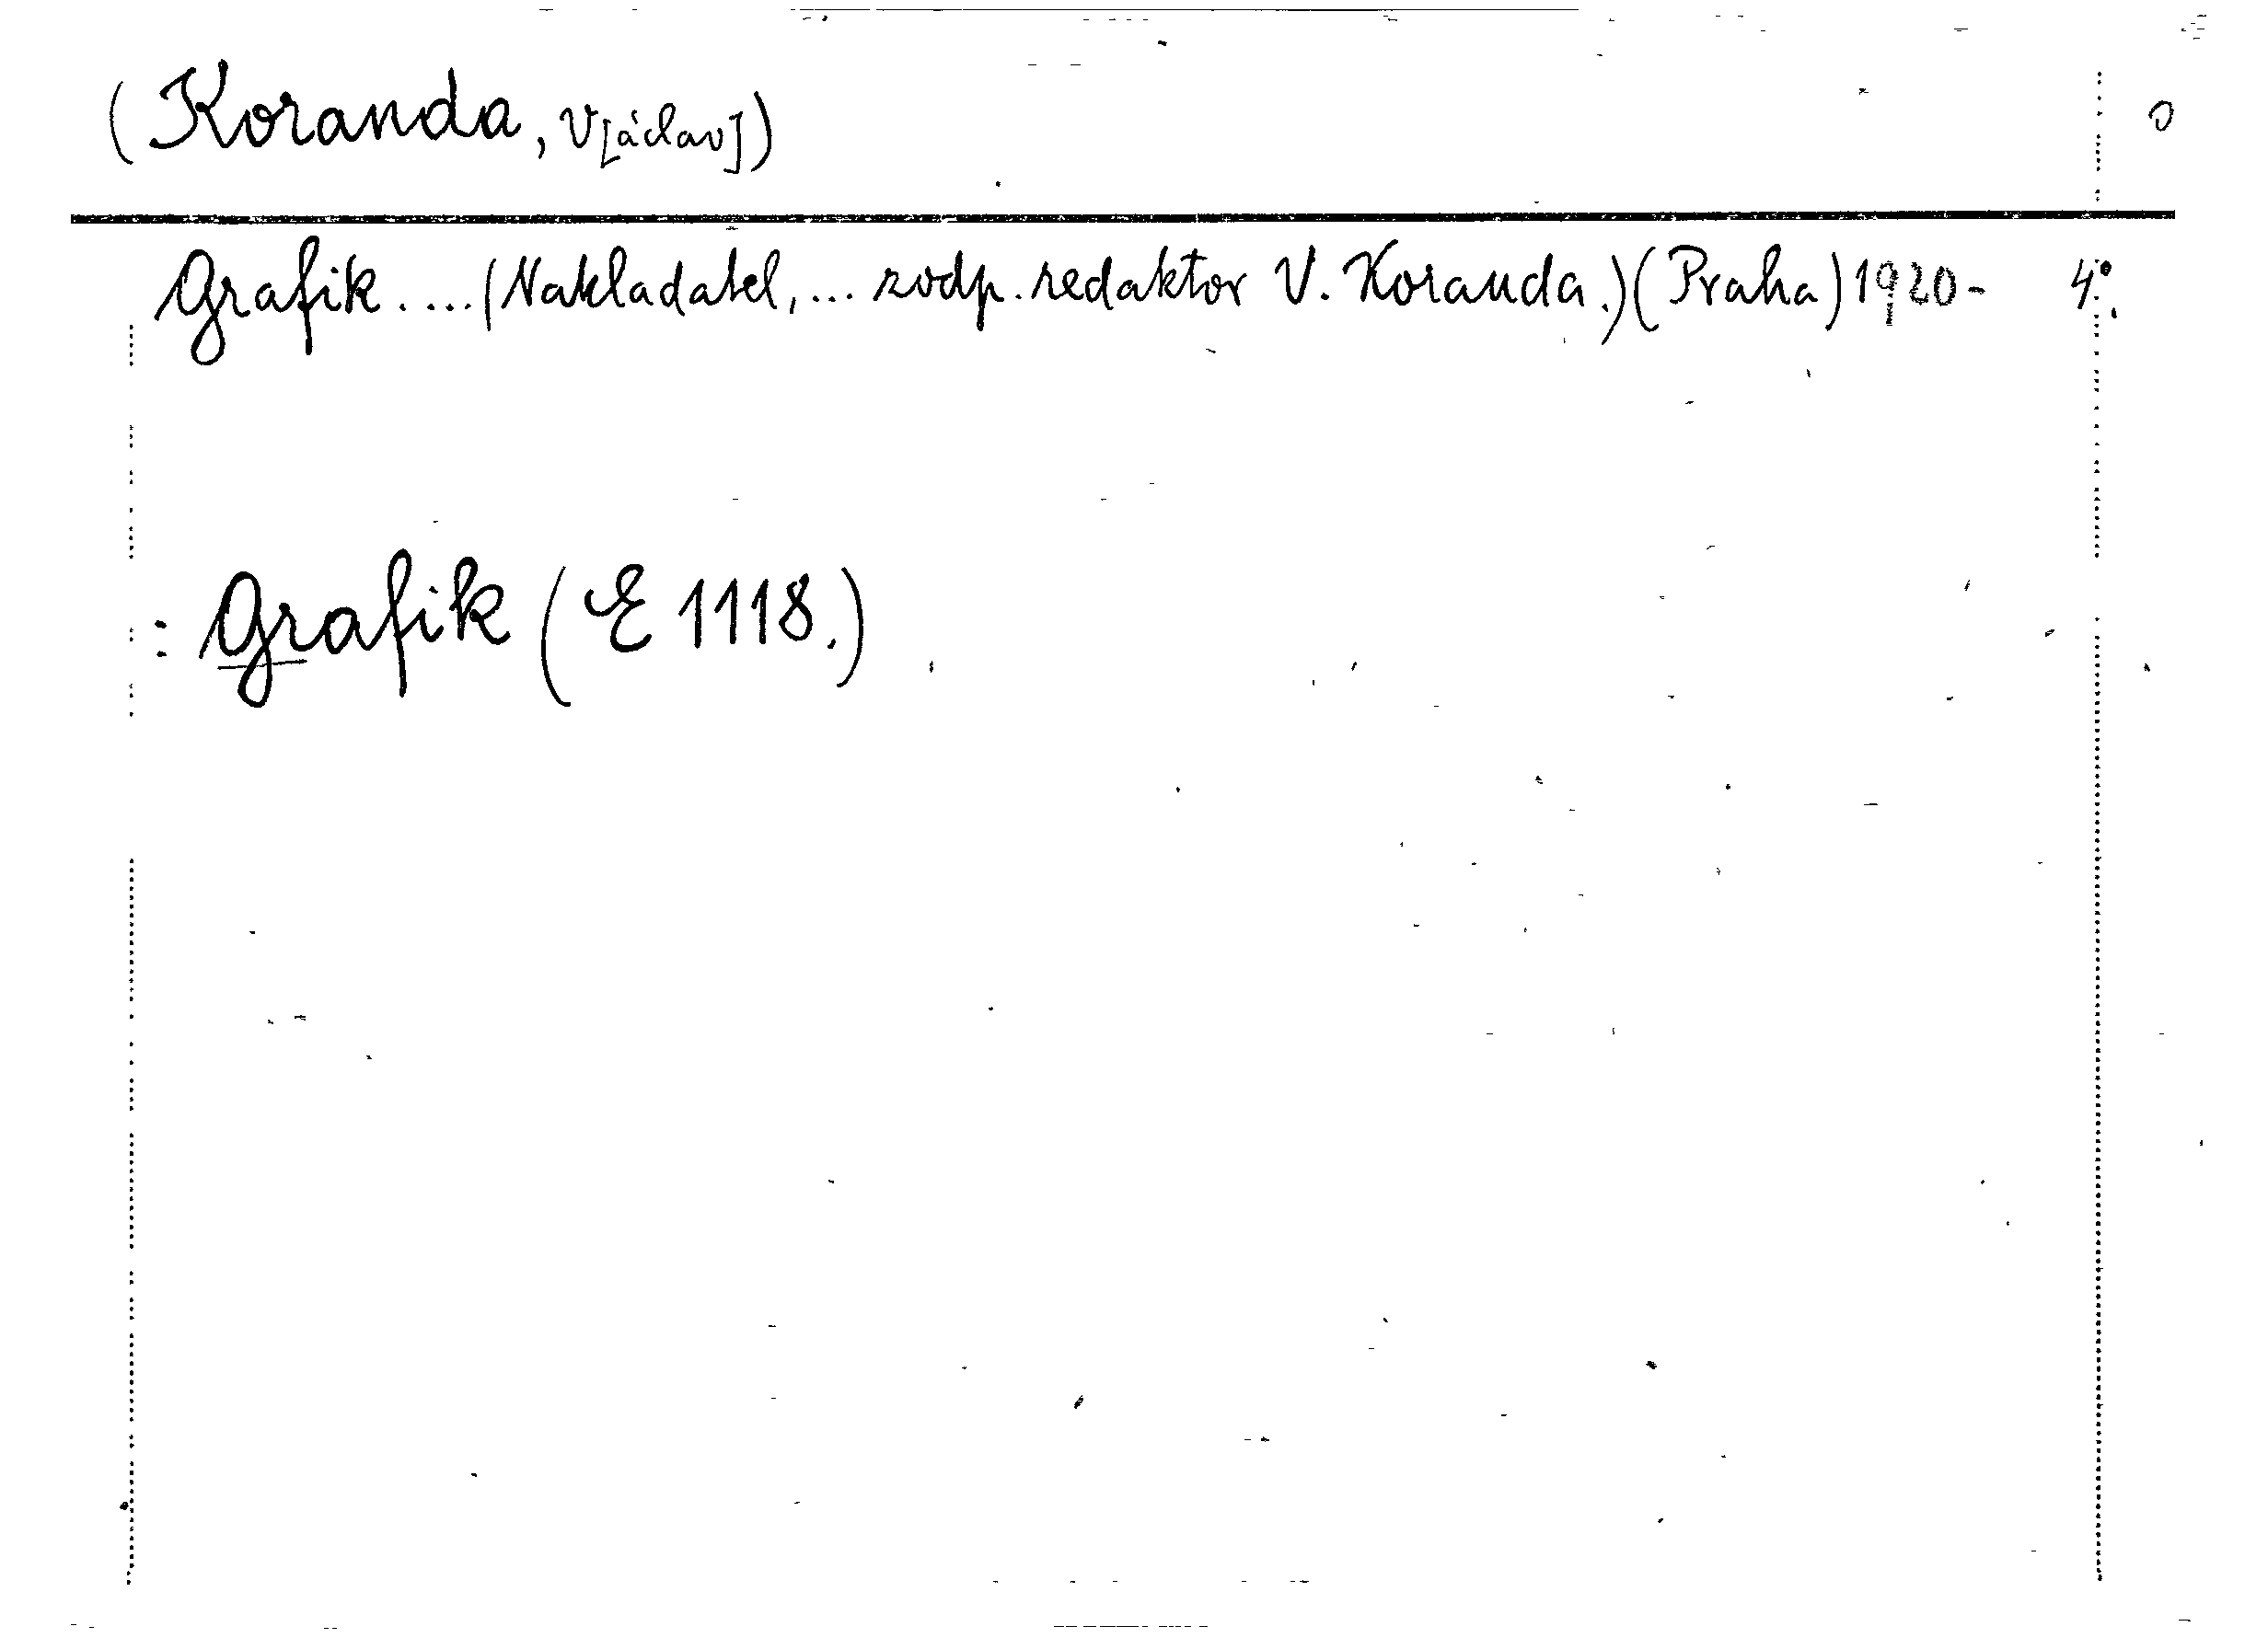 (Koranda, V[áclav]) O
Grafik .... (Nakladatel, ... zodp. redaktor V. Koranda.) (Praha) 1920- 4°.
: Grafik (E 1118.)